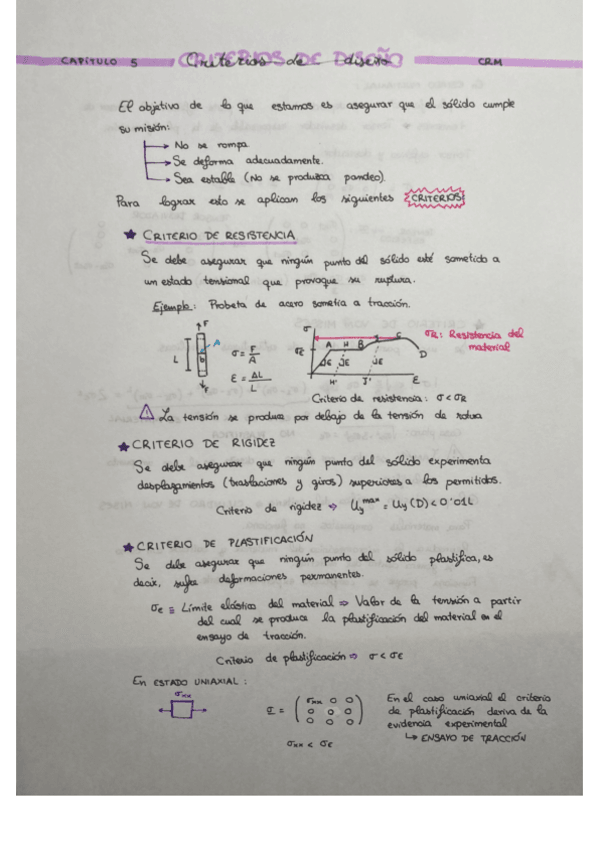 CAPÍTULO 5 Criterios de diseño CRM
El objetivo de lo que estamos es asegurar que el sólido cumple
su misión:
No se rompa
Se deforma adecuadamente.
Sea estable (No se produzca pandeo).
Para lograr esto se aplican los siguientes CRITERIOS
★ CRITERIO DE RESISTENCIA
Se debe asegurar que ningún punto del sólido esté sometido a
un estado tensional que provoque su ruptura.
Ejemplo: Probeta de acero sometia a tracción.
F
A
b
L
F
σ = F/A
Ɛ = ΔL/L
σ
σE
A H B J C
D
H' J' Ɛ
σR: Resistencia del
material
Criterio de resistencia: σ < σR
⚠ La tensión se produce por debajo de la tensión de rotura
★ CRITERIO DE RIGIDEZ
Se debe asegurar que ningún punto del sólido experimenta
desplazamientos (traslaciones y giros) superiores a los permitidos.
Criterio de rigidez ⇒ Uy max = Uy (D) < 0'01L
★ CRITERIO DE PLASTIFICACIÓN
Se debe asegurar que ningún punto del sólido plastifica, es
decir, sufra deformaciones permanentes.
σe ≡ Límite elástico del material ⇒ Valor de la tensión a partir
del cual se produce la plastificación del material en el
ensayo de tracción.
Criterio de plastificación ⇒ σ < σe
En ESTADO UNIAXIAL:
σxx
σ = ( σxx 0 0
0 0 0
0 0 0 )
σxx < σe
En el caso uniaxial el criterio
de plastificación deriva de la
evidencia experimental
↳ ENSAYO DE TRACCIÓN